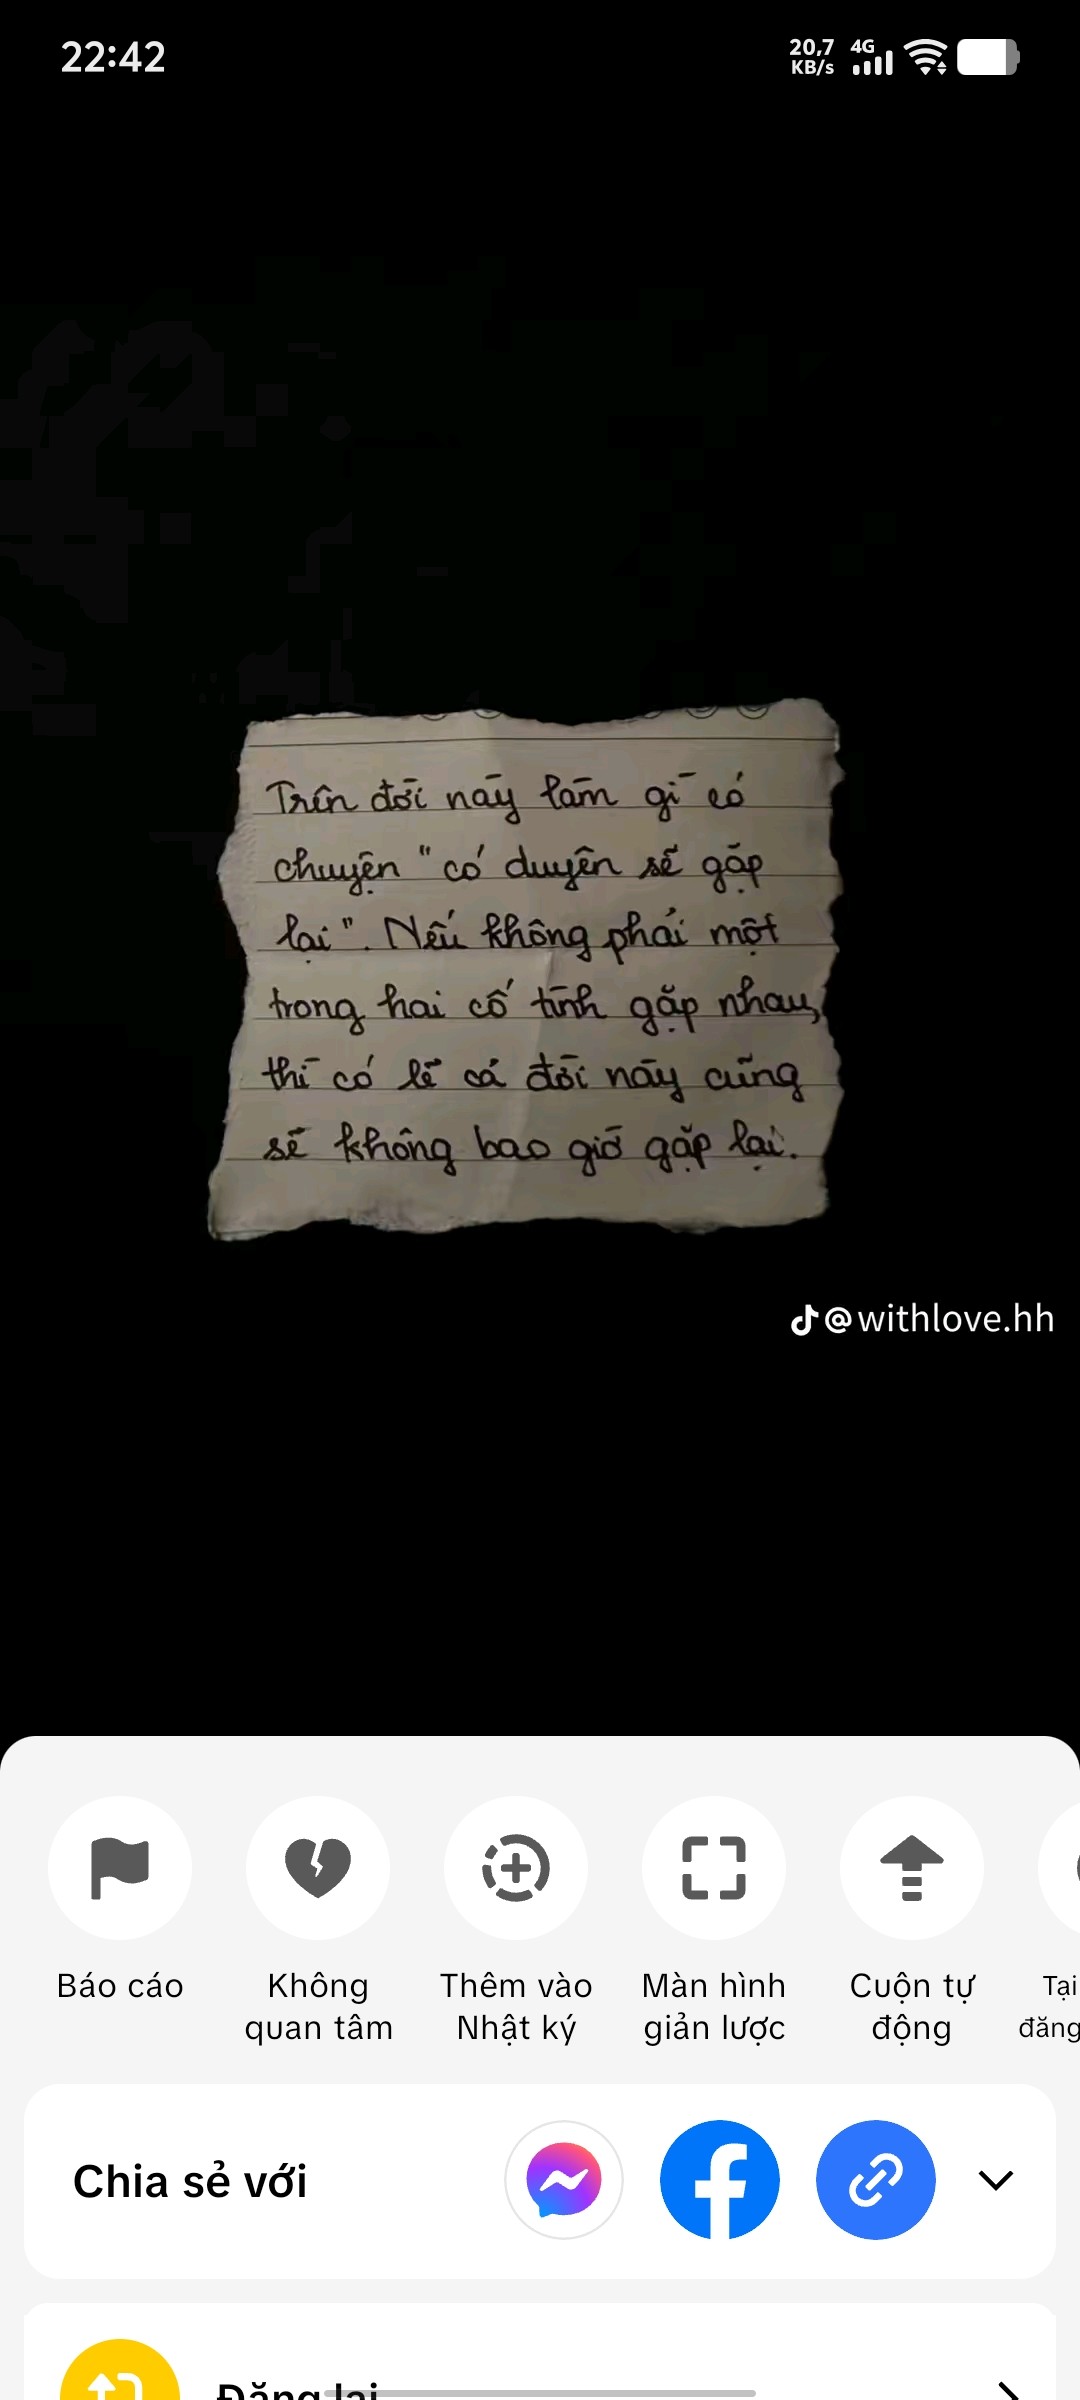 22:42
20,7 KB/s 4G
Trên đời này làm gì có
chuyện "có duyên sẽ gặp
lại". Nếu không phải một
trong hai cố tình gặp nhau,
thì có lẽ cả đời này cũng
sẽ không bao giờ gặp lại.
@withlove.hh
Báo cáo
Không quan tâm
Thêm vào Nhật ký
Màn hình giản lược
Cuộn tự động
Tại
đăng
Chia sẻ với
Đăng lại